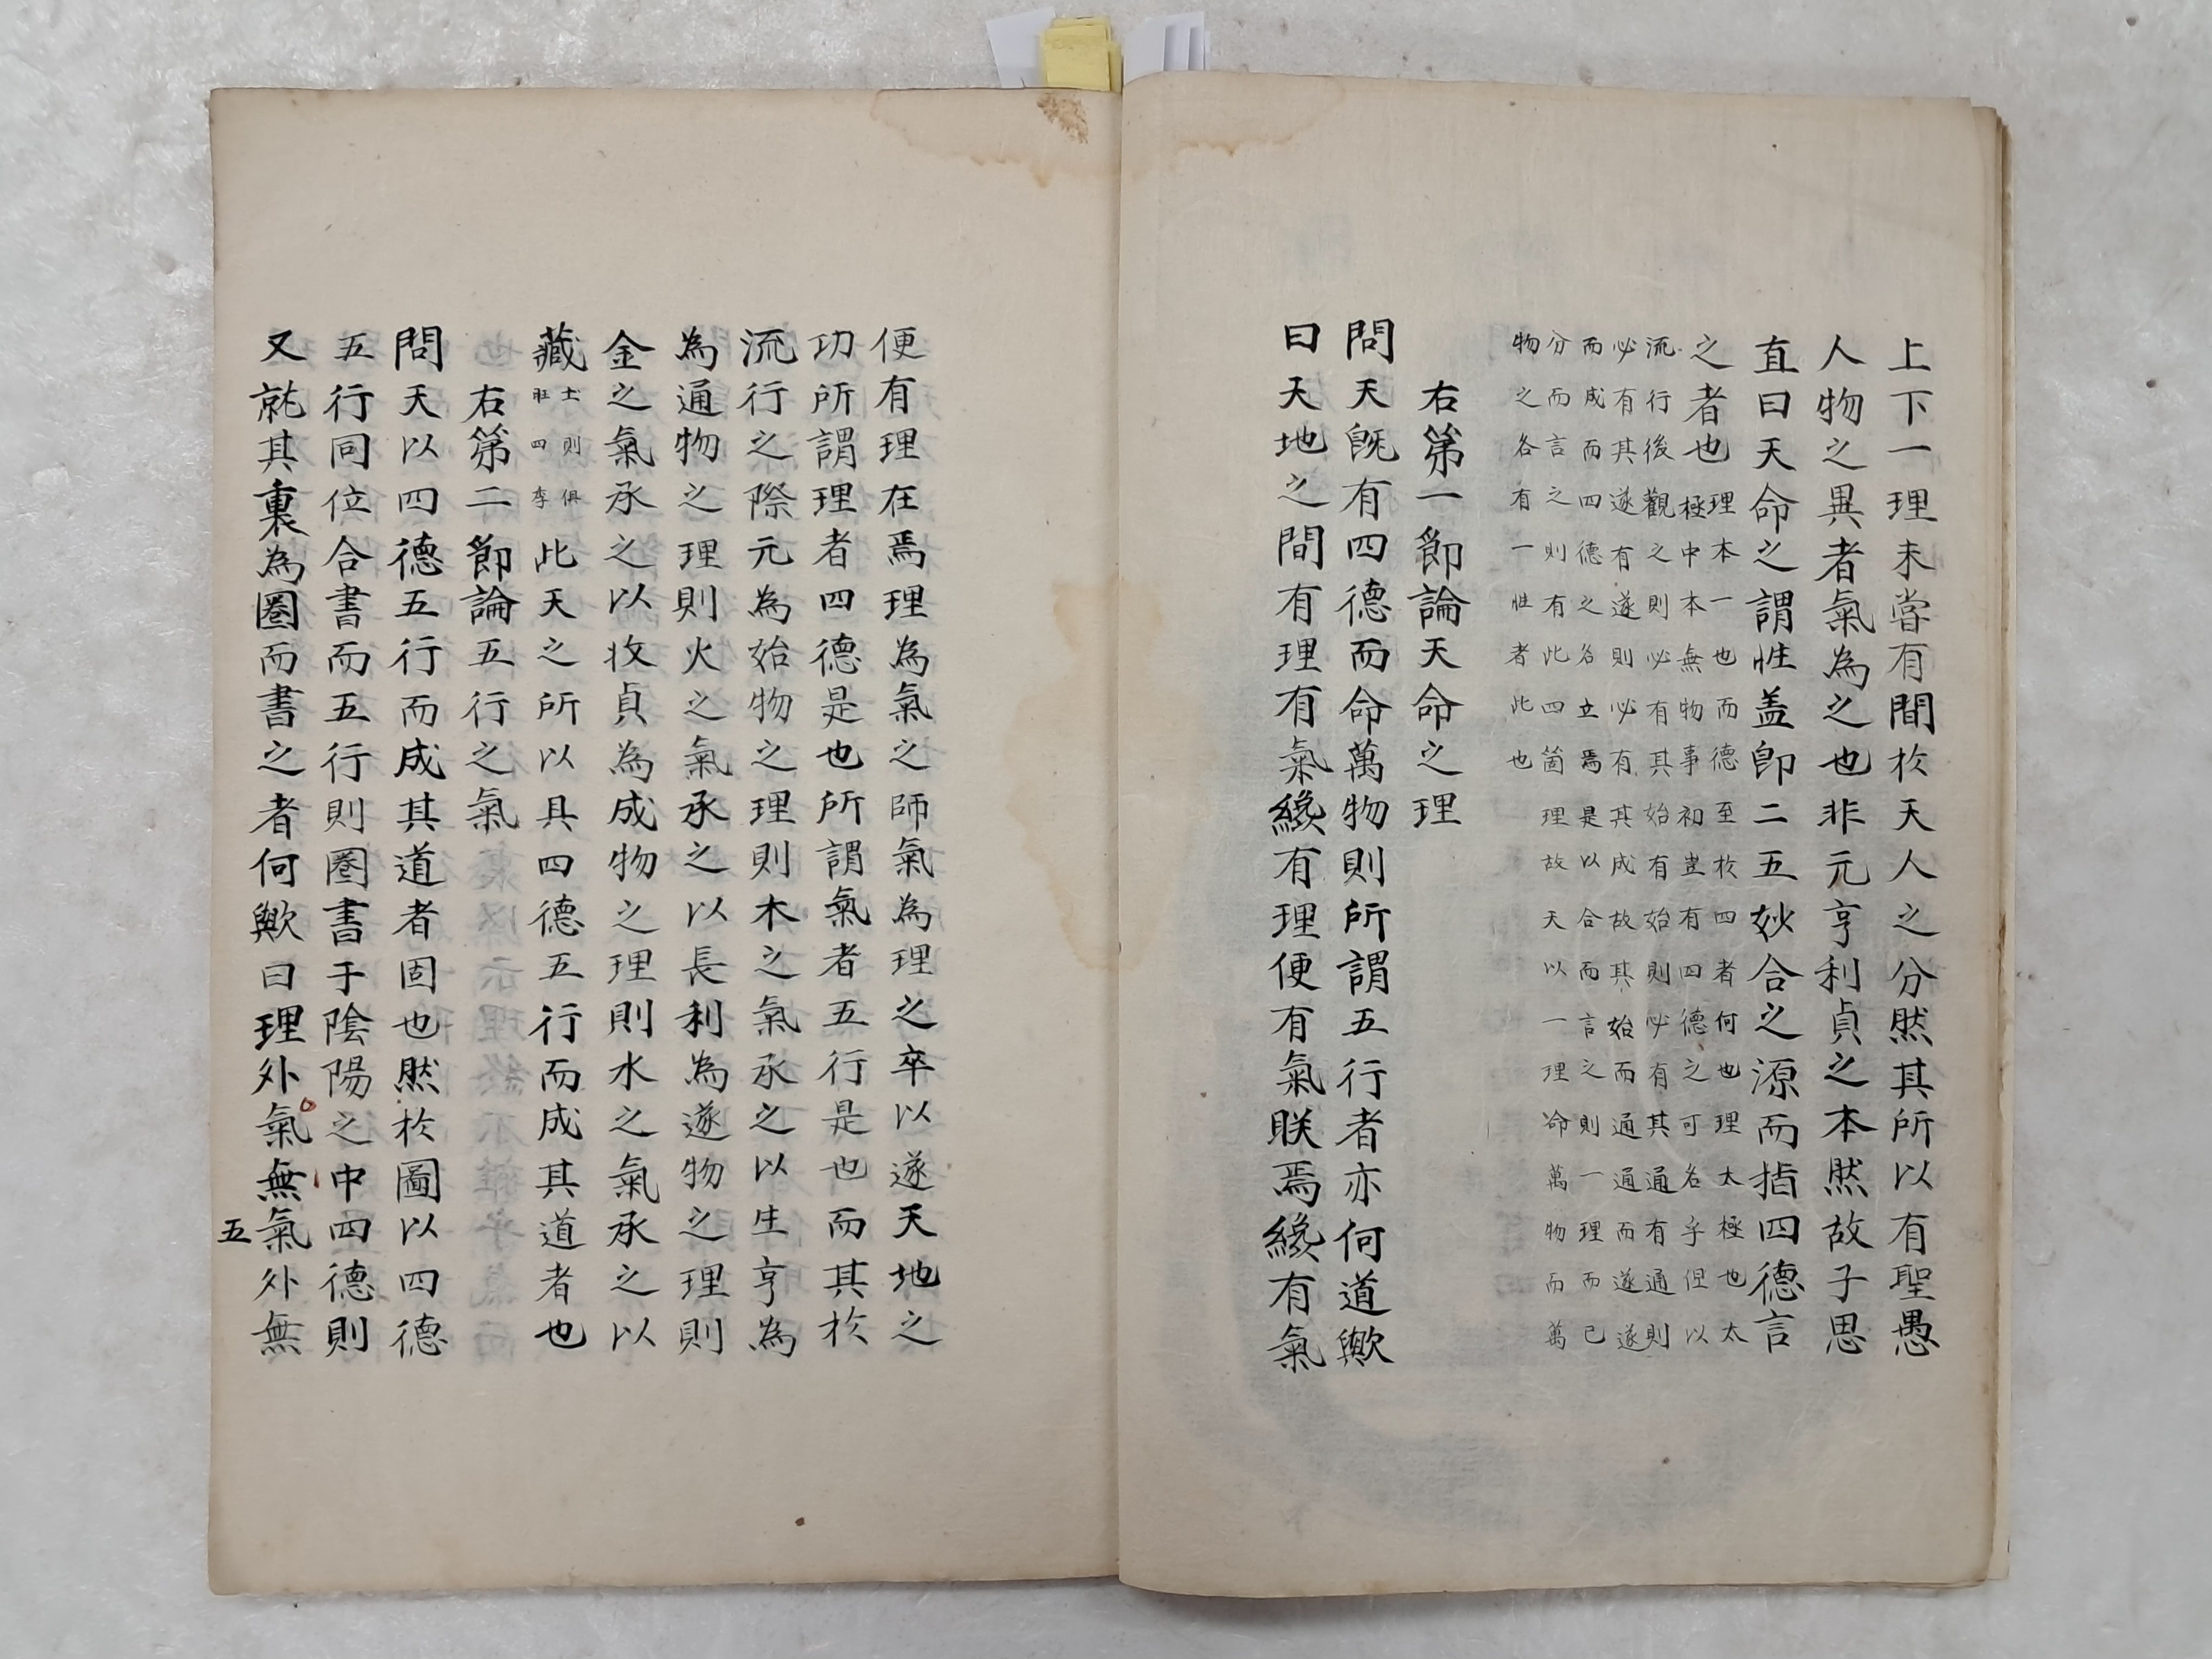 上下一理未嘗有間於天人之分然其所以有聖愚
人物之異者氣為之也非元亨利貞之本然故子思
直曰天命之謂性盖即二五妙合之源而指四德言
之者也理本一也而德至於四者何也理太極也太
極中本無物事初豈有四德之可名乎但以
流行後觀之則必有其始有始則必有其通有通則
必有其遂有遂則必有其成故其始而通通而遂遂
而成而四德之名立焉是以合而言之則一理而已
分而言之則有此四箇理故天以一理命萬物而萬
物之各有一性者此也
右第一節論天命之理
問天既有四德而命萬物則所謂五行者亦何道歟
曰天地之間有理有氣纔有理便有氣眹焉纔有氣
便有理在焉理為氣之師氣為理之卒以遂天地之
功所謂理者四德是也所謂氣者五行是也而其於
流行之際元為始物之理則木之氣承之以生亨為
為通物之理則火之氣承之以長利為遂物之理則
金之氣承之以收貞為成物之理則水之氣承之以
藏土則俱旺四季此天之所以具四德五行而成其道者也
右第二節論五行之氣
問天以四德五行而成其道者固也然於圖以四德
五行同位合書而五行則圈書于陰陽之中四德則
又就其裏為圈而書之者何歟曰理外氣無氣外無
五